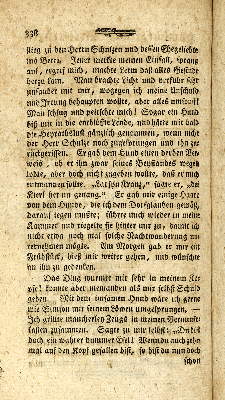 338
stieg zu den Herrn Schulzen und dessen Eheliebste
ins Bett. Jener merkte meinen Einfall, sprang
auf, ergrif mich, machte Lerm daß alles Gesinde
herzu kam. Man brachte Licht und verfuhr sehr
unsauber mit mir, wogegen ich meine Unschuld
und Irrung behaupten wollte, aber alles umsonst!
Man schlug und peitschte mich! Sogar ein Hund
biß mir in die und hätte mir bald
die Heyrathslust gänzlich genommen, wenn nicht
der Herr Schulze noch zugesprungen und ihn zu
rückgerissen. Er gab dem Hund einen derben Ver
weis, ob er ihn zwar seines Beystandes wegen
lobte, aber doch nicht zugeben wollte, daß er mich
entmannen sollte. sagte er,
Kierl her nu genang. Er gab mir einige Haare
von dem Hunde, die ich dem Dorfglauben gemäß,
darauf legen mußte; führte mich wieder in meine
Kammer und riegelte sie hinter mir zu, damit ich
nicht etwa noch mal solche Nachtwanderung un
ternehmen mögte. Am Morgen gab er mir ein
Frühstück, hieß mir weiter gehen, und wünschte
an ihn zu gedenken.
Das Ding wurmte mir sehr in meinem Ko
pfe! konnte aber niemanden als mir selbst Schuld
geben. Mit dem infamen Hund wäre ich gerne
wie Simson mit seinem Löwen umgesprungen. —
Ich grillte mancherley Zeugs in meinen Vernunft
kasten zusammen. Sagte zu mir selbst: „Du bist
doch ein wahrer dummer Kerl! Wenn du auch zehn
mal auf den Kopf gefallen bist, so bist du nun doch
schon